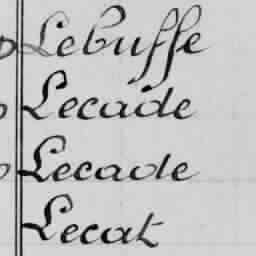 Lebuffe
Lecade
Lecade
Lecat